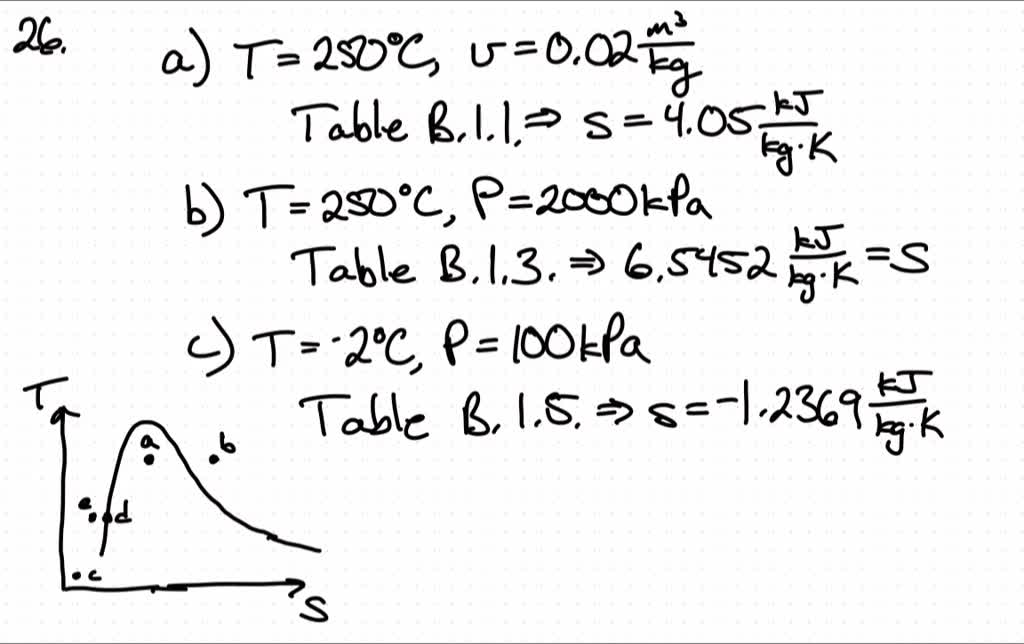 26.
a) T = 250°C, v = 0.02 m³/kg
Table B.1.1. ⇒ s = 4.05 kJ/kg·K
b) T = 250°C, P = 2000kPa
Table B.1.3. ⇒ 6.5452 kJ/kg·K = S
c) T = -2°C, P = 100kPa
Table B.1.5. ⇒ s = -1.2369 kJ/kg·K
T
a
b
e
d
c
S